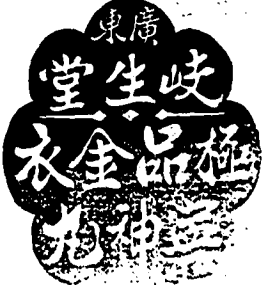 廣東
岐生堂
極品金衣
神丸